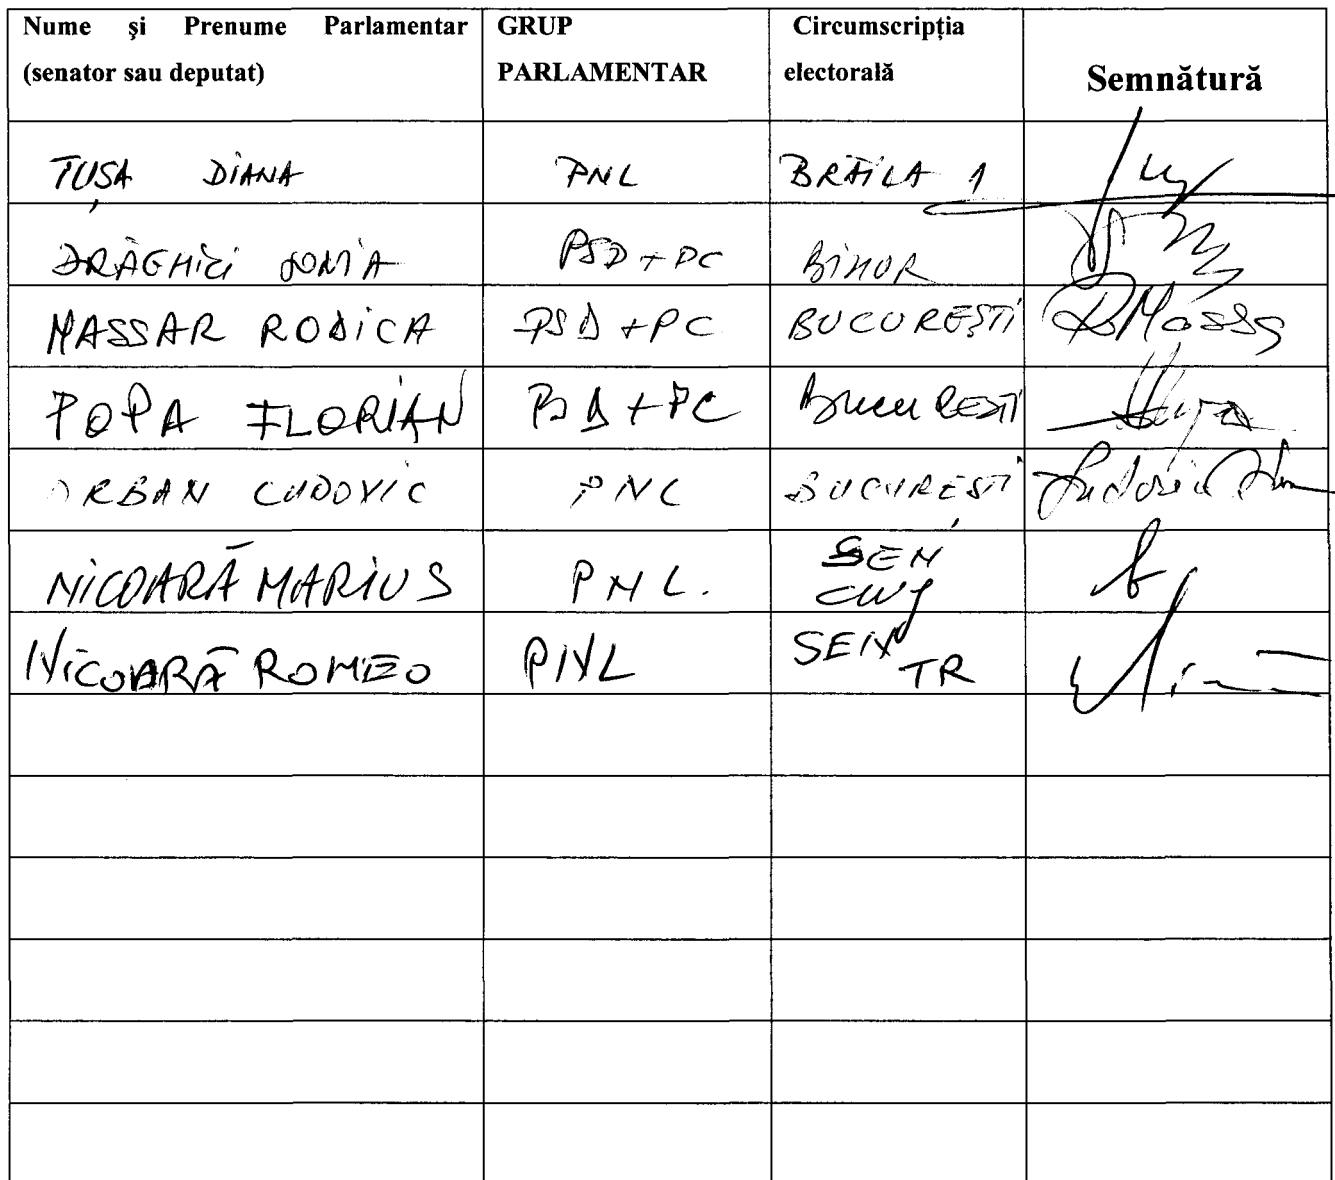 Nume și Prenume Parlamentar (senator sau deputat) GRUP PARLAMENTAR Circumscripția electorală Semnătură
TUȘA DIANA PNL BRĂILA 1
DRĂGHICI SONIA PSD+PC BIHOR
MASSAR RODICA PSD+PC BUCUREȘTI
POPA FLORIAN PSD+PC BUCUREȘTI
ORBAN LUDOVIC PNL BUCUREȘTI Ludovic
NICOARĂ MARIUS PNL. SEN CLUJ
NICOARĂ ROMEO PNL SEN TR